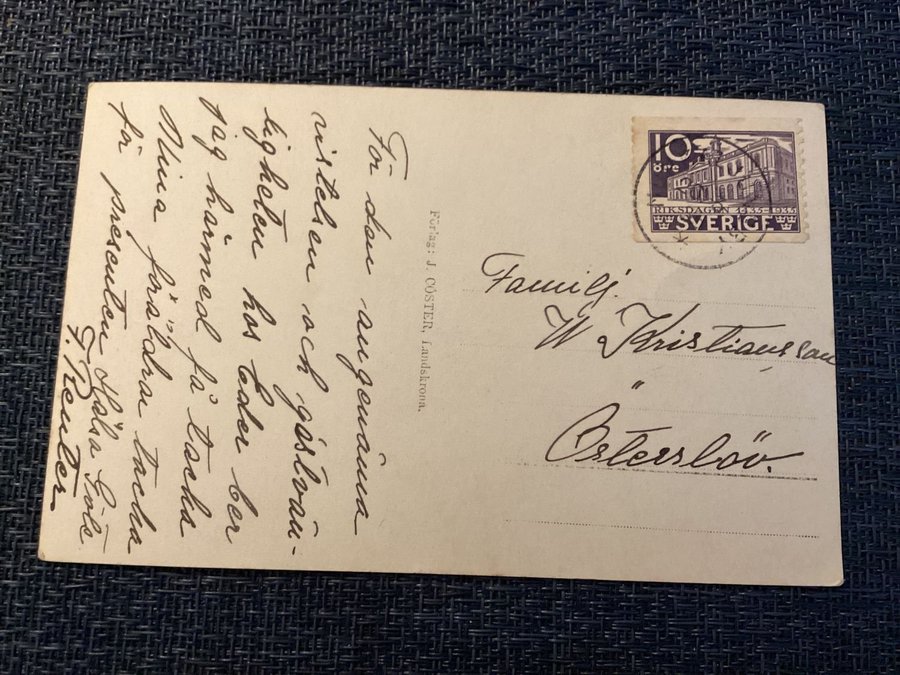 För den angenäma
vistelsen och gästvän-
ligheten hos Eder ber
jag härmed få tacka
Mina föräldrar tacka
för presenten Hälsa Göte
F. Reuter
Förlag: J. CÖSTER, Landskrona.
10
öre
RIKSDAGEN 1435-1935
SVERIGE
Familj.
W Kristiansson
Österslöv.